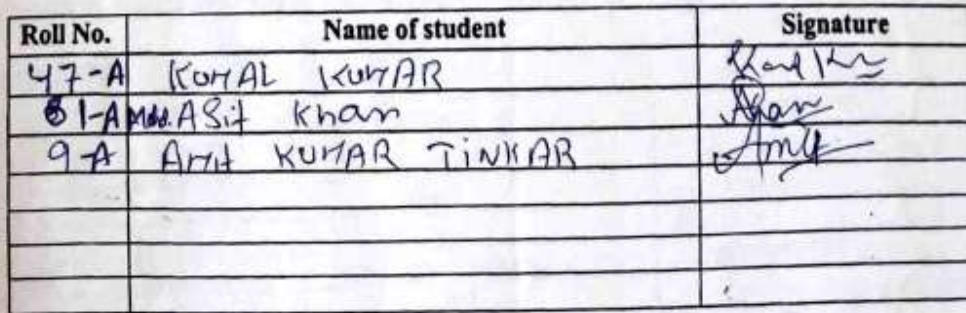 Roll No. Name of student Signature
47-A KOMAL KUMAR
61-A Md. ASif Khan
9-A AMit KUMAR TiNKAR Amit